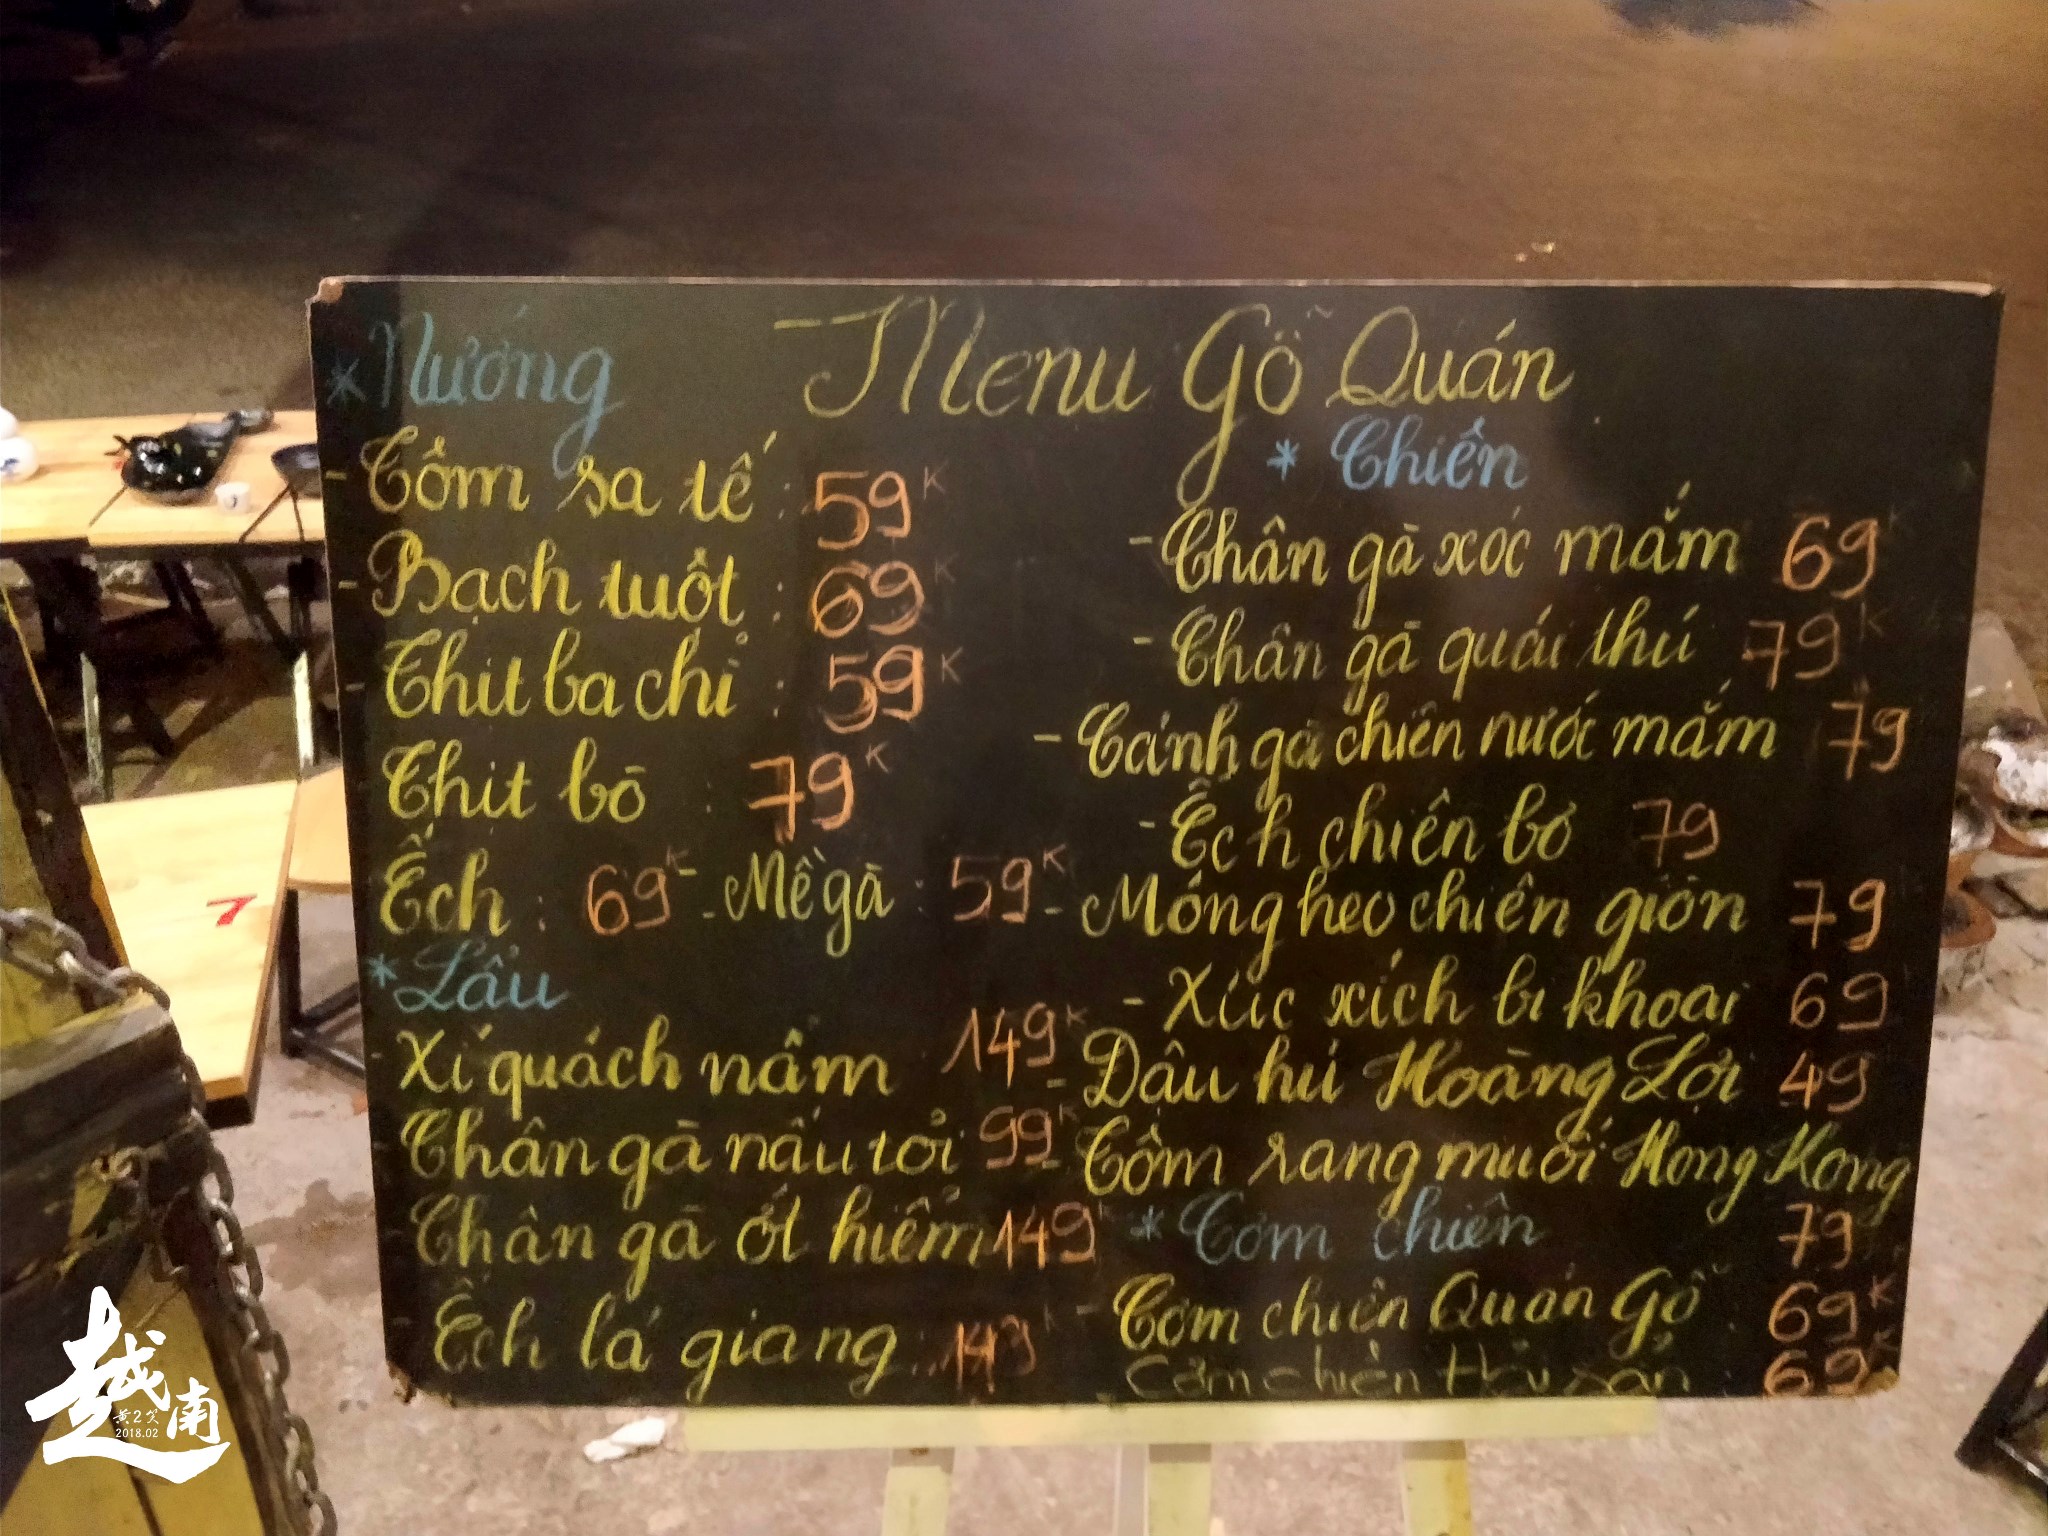 Menu Gỗ Quán
* Nướng
- Tôm sa tế : 59K
- Bạch tuột : 69K
- Thịt ba chỉ : 59K
Thịt bò : 79K
Ếch : 69K - Mề gà : 59K
* Lẩu
- Xí quách nấm 149K
- Chân gà nấu tỏi 99K
- Chân gà ớt hiểm 149K
- Ếch lá giang : 149K
* Chiên
- Chân gà xóc mắm 69K
- Chân gà quái thú 79K
- Cánh gà chiên nước mắm 79
- Ếch chiên bơ 79
- Móng heo chiên giòn 79
- Xúc xích bi khoai 69
- Dậu hủ Hoàng Lợi 49
- Tôm rang muối Hong Kong
79
* Cơm chiên
- Cơm chiên Quán Gỗ : 69K
Cơm chiên thủy sản : 69K
越南
黄2癸
2018.02
7